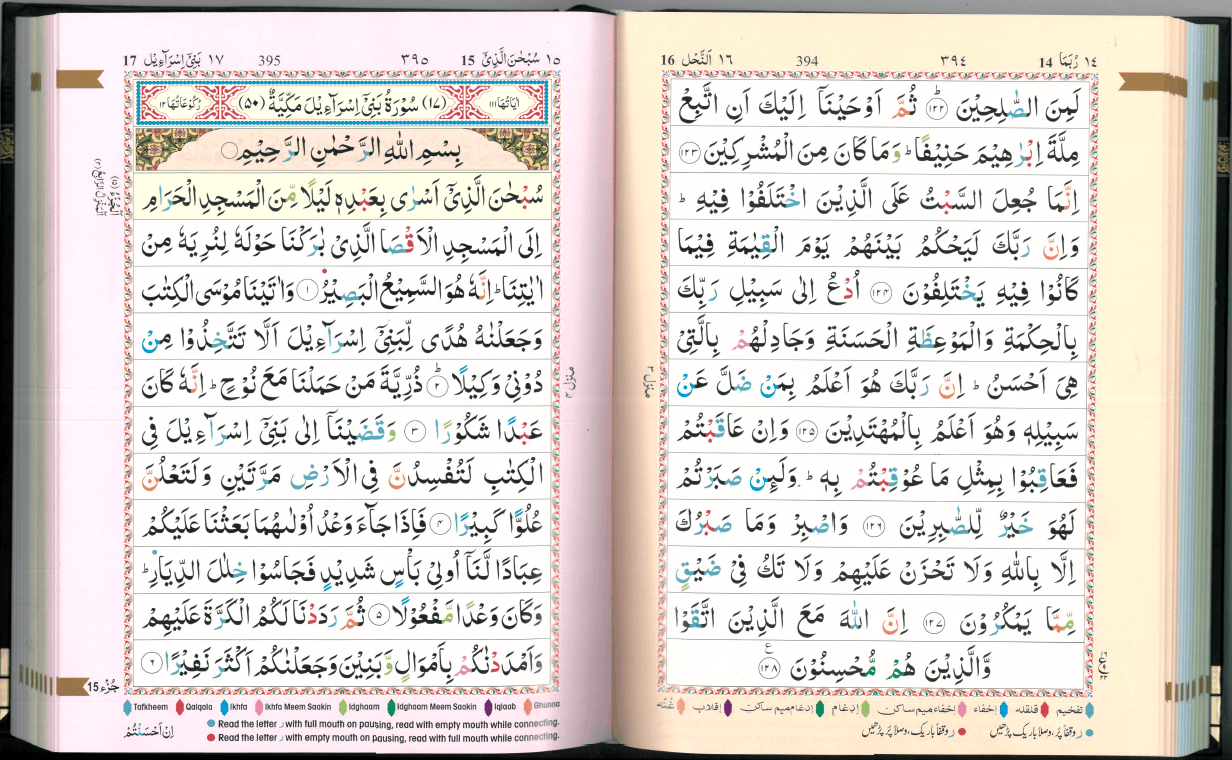 ١٤ رُبَمَا 14 ٣٩٤ 394 ١٦ اَلنَّحْل 16
لَمِنَ الصّٰلِحِيْنَ ۝۱۲۲ ثُمَّ اَوْحَيْنَاۤ اِلَيْكَ اَنِ اتَّبِعْ
مِلَّةَ اِبْرٰهِيْمَ حَنِيْفًا ؕ وَمَا كَانَ مِنَ الْمُشْرِكِيْنَ ۝۱۲۳
اِنَّمَا جُعِلَ السَّبْتُ عَلَى الَّذِيْنَ اخْتَلَفُوْا فِيْهِ ؕ
وَاِنَّ رَبَّكَ لَيَحْكُمُ بَيْنَهُمْ يَوْمَ الْقِيٰمَةِ فِيْمَا
كَانُوْا فِيْهِ يَخْتَلِفُوْنَ ۝۱۲۴ اُدْعُ اِلٰى سَبِيْلِ رَبِّكَ
بِالْحِكْمَةِ وَالْمَوْعِظَةِ الْحَسَنَةِ وَجَادِلْهُمْ بِالَّتِيْ
هِيَ اَحْسَنُ ؕ اِنَّ رَبَّكَ هُوَ اَعْلَمُ بِمَنْ ضَلَّ عَنْ
سَبِيْلِهٖ وَهُوَ اَعْلَمُ بِالْمُهْتَدِيْنَ ۝۱۲۵ وَاِنْ عَاقَبْتُمْ
فَعَاقِبُوْا بِمِثْلِ مَا عُوْقِبْتُمْ بِهٖ ؕ وَلَىِٕنْ صَبَرْتُمْ
لَهُوَ خَيْرٌ لِّلصّٰبِرِيْنَ ۝۱۲۶ وَاصْبِرْ وَمَا صَبْرُكَ
اِلَّا بِاللّٰهِ وَلَا تَحْزَنْ عَلَيْهِمْ وَلَا تَكُ فِيْ ضَيْقٍ
مِّمَّا يَمْكُرُوْنَ ۝۱۲۷ اِنَّ اللّٰهَ مَعَ الَّذِيْنَ اتَّقَوْا
وَّالَّذِيْنَ هُمْ مُّحْسِنُوْنَ ۝۱۲۸
ع
منزل ۳
تفخيم قلقله اخفاء اخفاء ميم ساكن ادغام ادغام ميم ساكن اقلاب غُنّه
ر وقفًا پُر، وصلاً باریک پڑھیں
ر وقفًا باریک، وصلاً پُر پڑھیں
١٥ سُبْحٰنَ الَّذِيْۤ 15 ٣٩٥ 395 ١٧ بَنِيْۤ اِسْرَآءِيْل 17
اٰيَاتُهَا ١١١ (١٧) سُوْرَةُ بَنِيْۤ اِسْرَآءِيْلَ مَكِّيَّةٌ (٥٠) رُكُوْعَاتُهَا ١٢
بِسْمِ اللّٰهِ الرَّحْمٰنِ الرَّحِيْمِ
سُبْحٰنَ الَّذِيْۤ اَسْرٰى بِعَبْدِهٖ لَيْلًا مِّنَ الْمَسْجِدِ الْحَرَامِ
اِلَى الْمَسْجِدِ الْاَقْصَا الَّذِيْ بٰرَكْنَا حَوْلَهٗ لِنُرِيَهٗ مِنْ
اٰيٰتِنَا ؕ اِنَّهٗ هُوَ السَّمِيْعُ الْبَصِيْرُ ۝۱ وَاٰتَيْنَا مُوْسَى الْكِتٰبَ
وَجَعَلْنٰهُ هُدًى لِّبَنِيْۤ اِسْرَآءِيْلَ اَلَّا تَتَّخِذُوْا مِنْ
دُوْنِيْ وَكِيْلًا ؕ۝۲ ذُرِّيَّةَ مَنْ حَمَلْنَا مَعَ نُوْحٍ ؕ اِنَّهٗ كَانَ
عَبْدًا شَكُوْرًا ۝۳ وَقَضَيْنَاۤ اِلٰى بَنِيْۤ اِسْرَآءِيْلَ فِي
الْكِتٰبِ لَتُفْسِدُنَّ فِي الْاَرْضِ مَرَّتَيْنِ وَلَتَعْلُنَّ
عُلُوًّا كَبِيْرًا ۝۴ فَاِذَا جَآءَ وَعْدُ اُوْلٰىهُمَا بَعَثْنَا عَلَيْكُمْ
عِبَادًا لَّنَاۤ اُولِيْ بَاْسٍ شَدِيْدٍ فَجَاسُوْا خِلٰلَ الدِّيَارِ ؕ
وَكَانَ وَعْدًا مَّفْعُوْلًا ۝۵ ثُمَّ رَدَدْنَا لَكُمُ الْكَرَّةَ عَلَيْهِمْ
وَاَمْدَدْنٰكُمْ بِاَمْوَالٍ وَّبَنِيْنَ وَجَعَلْنٰكُمْ اَكْثَرَ نَفِيْرًا ۝۶
منزل ٤
جُزْء 15
Tafkheem Qalqala Ikhfa Ikhfa Meem Saakin Idghaam Idghaam Meem Saakin Iqlaab Ghunna
Read the letter ر with full mouth on pausing, read with empty mouth while connecting.
Read the letter ر with empty mouth on pausing, read with full mouth while connecting.
اِنْ اَحْسَنْتُمْ